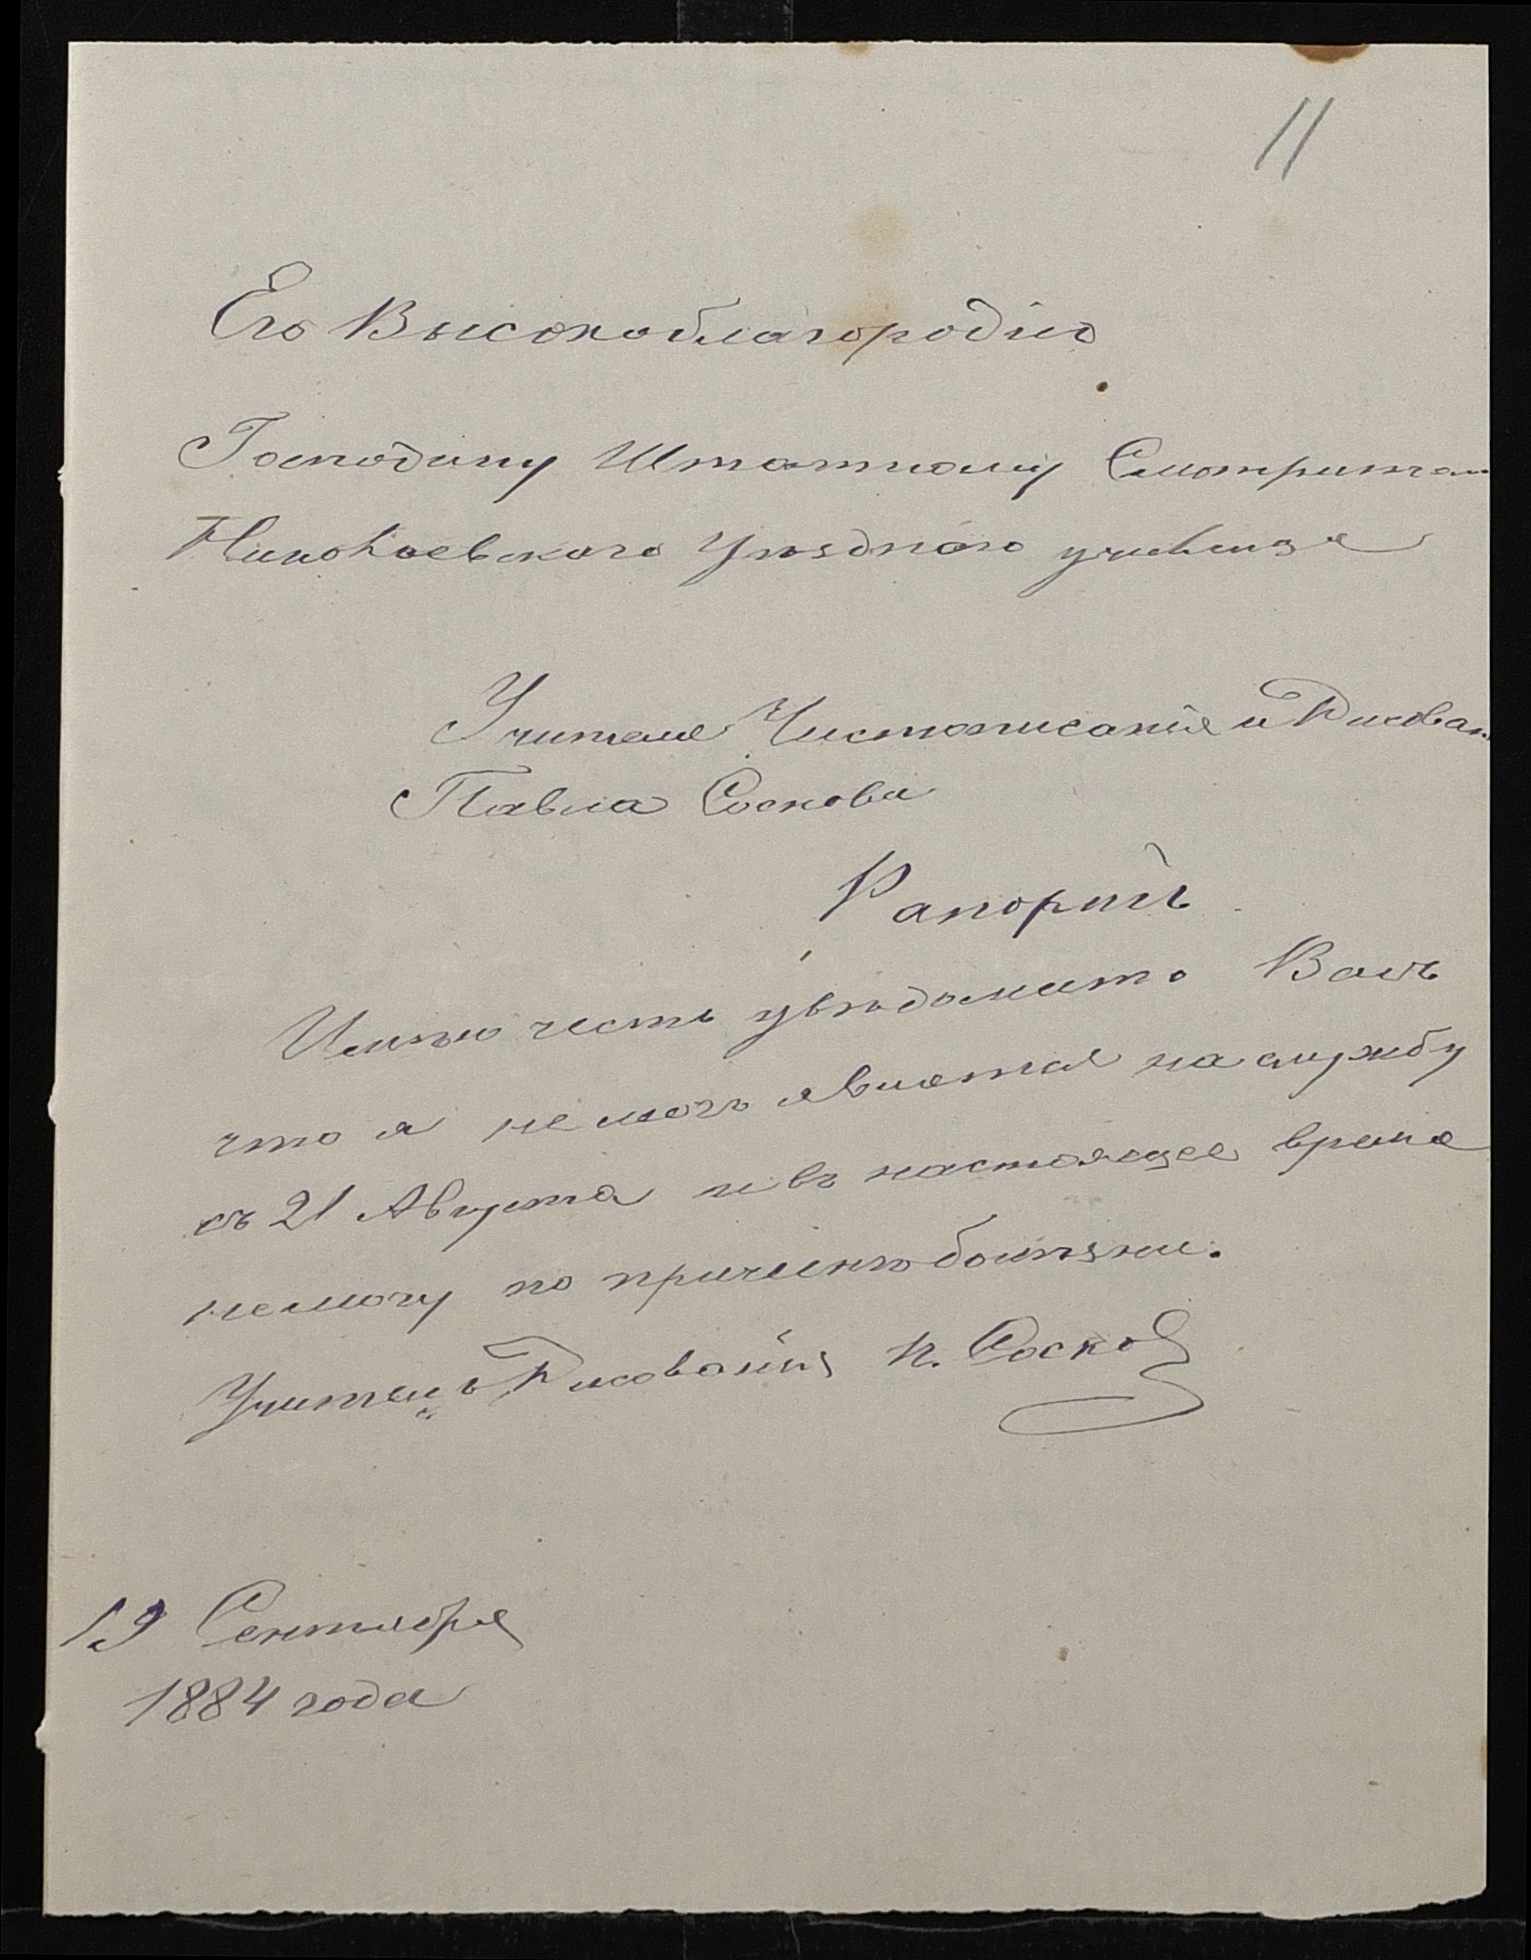 11
Его Высокоблагородію
Господину Штатному Смотрител
Николаевского Уѣзднаго училища
Учителя Чистописанія и Рисован
Павла Соскова
Рапортъ
Имѣю честь увѣдомить Васъ
что я не могъ явится на службу
съ 21 Августа и въ настоящее время
немогу по причинѣ болѣзни.
Учитель Рисованія П. Сосков
19 Сентября
1884 года